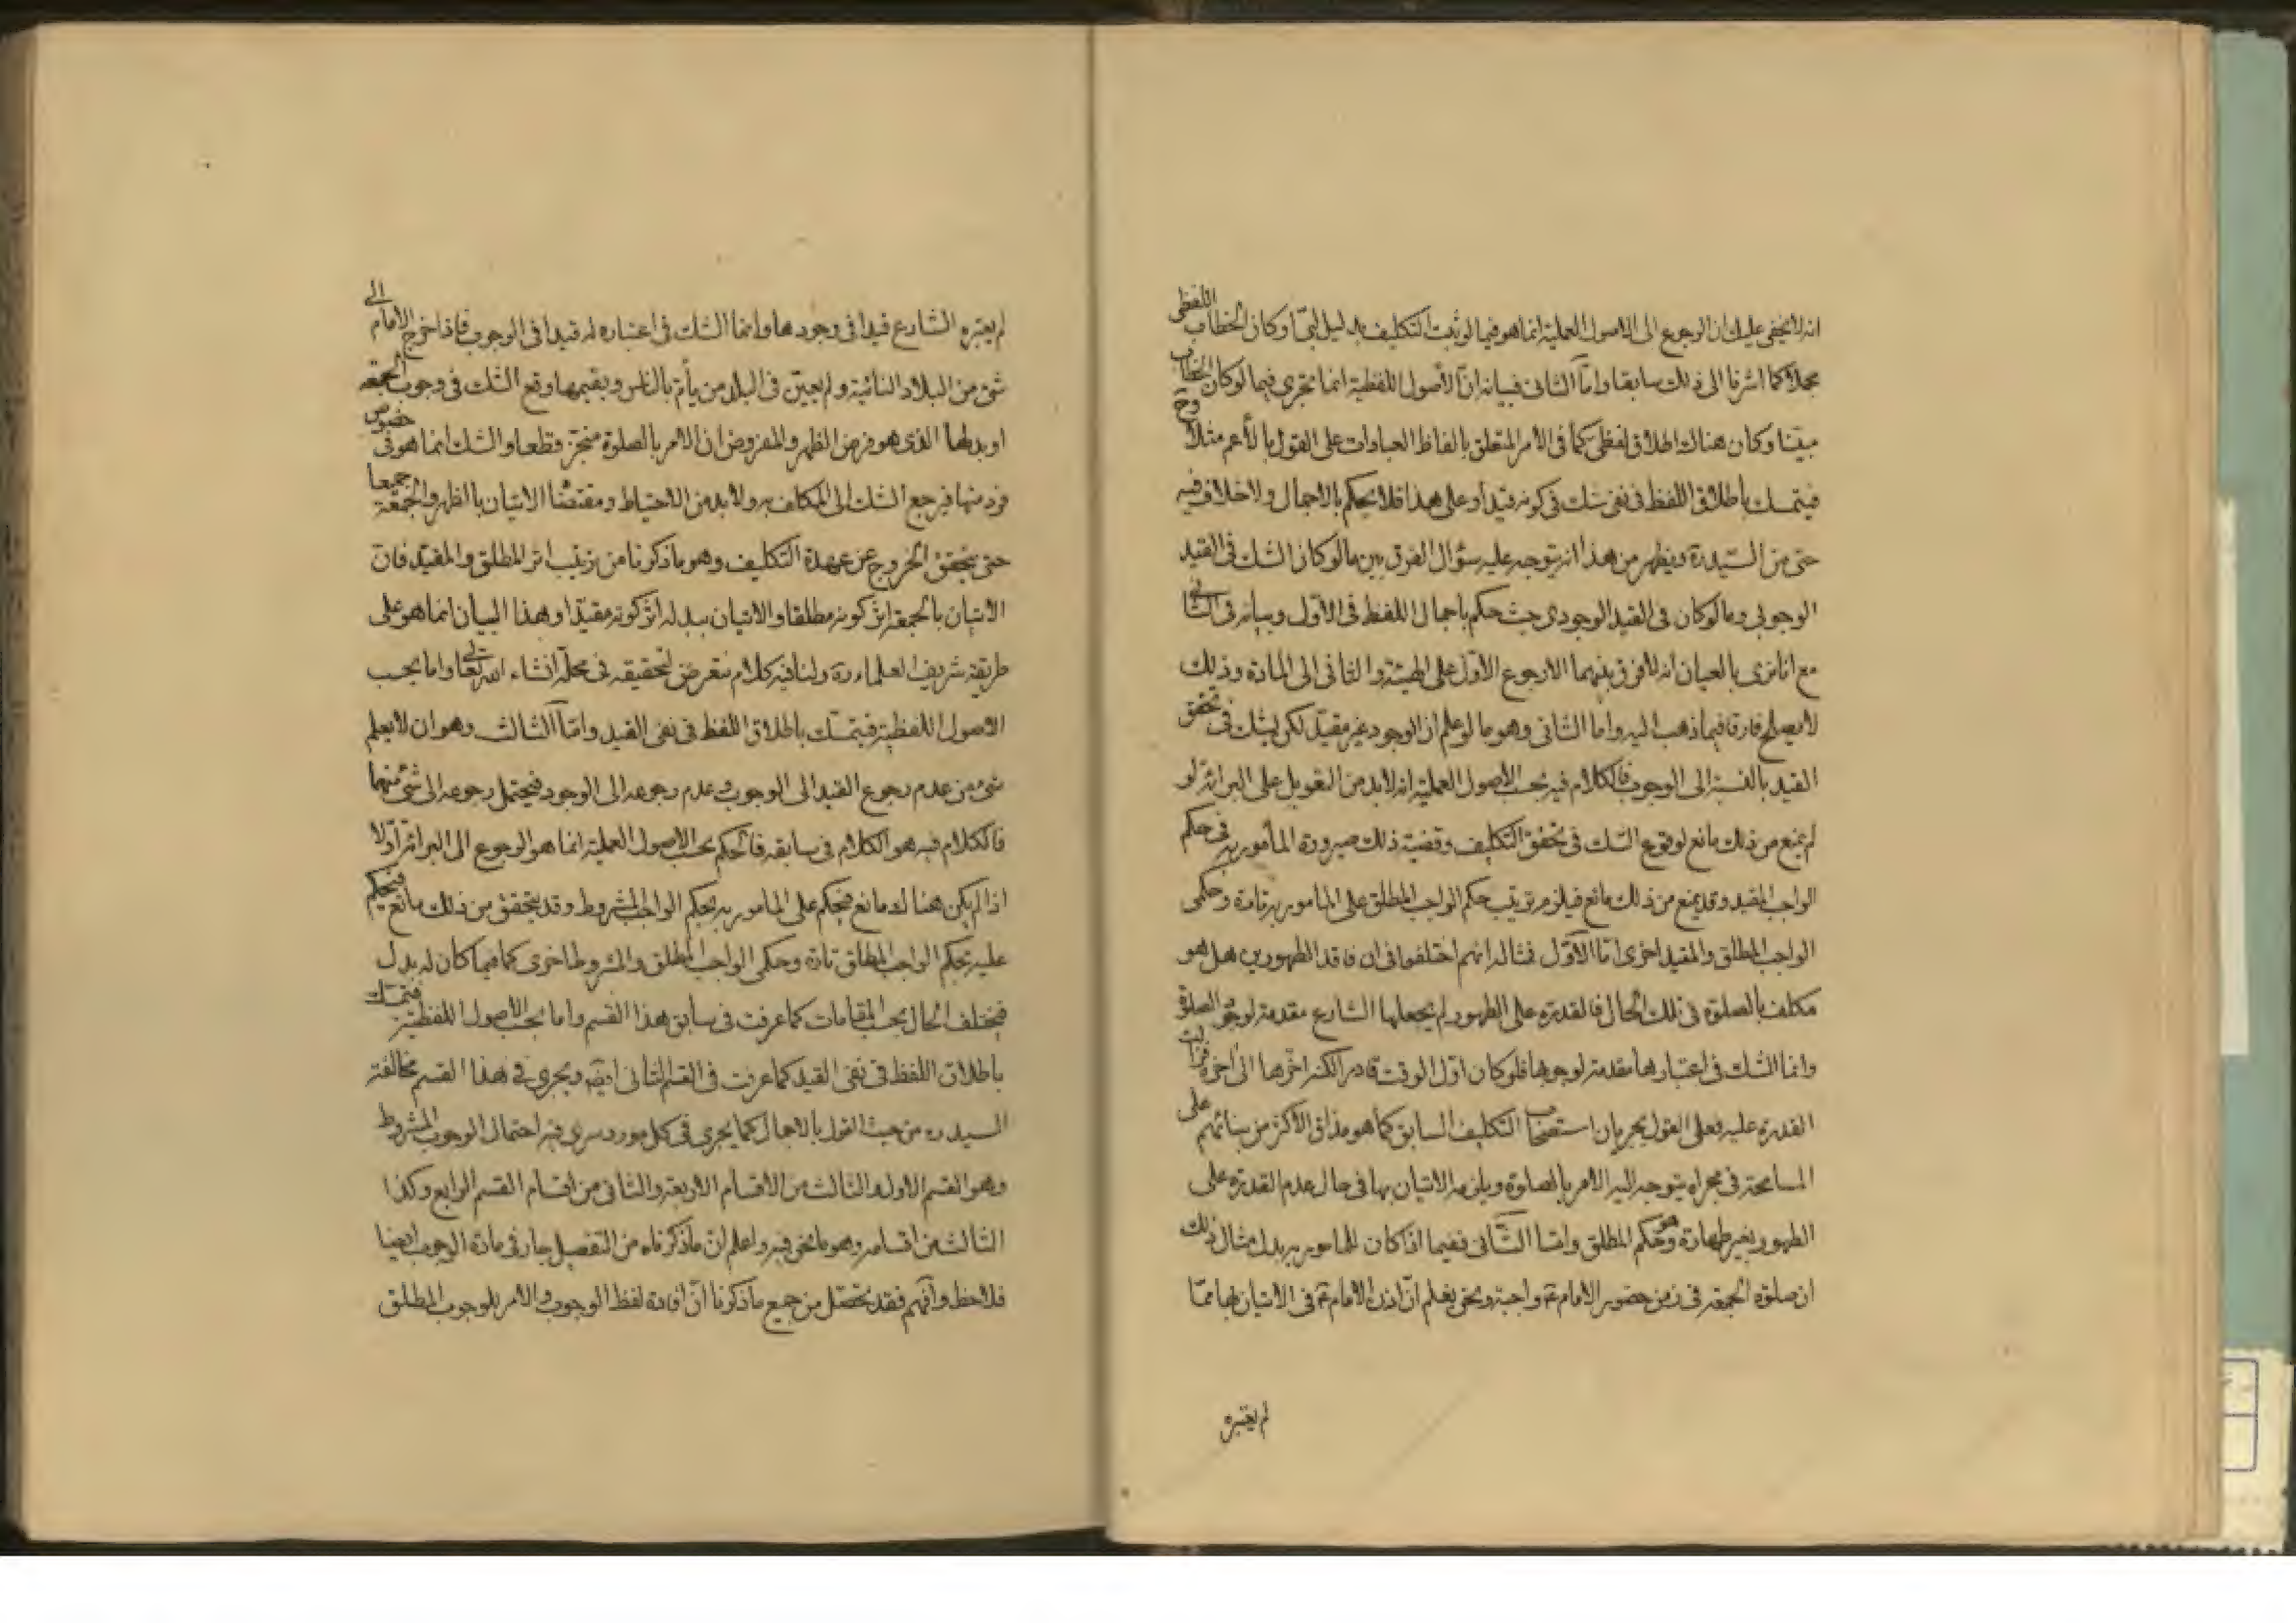 انه لا يخفى عليك ان الرجوع الى الاصول العملية انما هو فيما لو ثبت التكليف بدليل لبّى او كان الخطاب اللفظى
مجملا كما اشرنا الى ذلك سابقا وامّا الثانى فبيانه انّ الأصول اللفظية انما تجرى فيما لو كان الخطاب
مبيّنا وكان هناك اطلاق لفظى كما فى الأمر المتعلق بالفاظ العبادات على القول بالأعم مثلا وح
فيتمسك باطلاق اللفظ فى نفى شك فى كونه قيدا وعلى هذا فلا يحكم بالاجمال ولا خلاف فيه
حتى من السّيد ره ويظهر من هذا انه يتوجه عليه سؤال الفرق بين ما لو كان الشك فى القيد
الوجوبى وما لو كان فى القيد الوجودى حيث حكم باجمال اللفظ فى الأوّل وبيانه فى الثانى
مع انا نرى بالعيان انه لا فرق بينهما الا رجوع الأوّل على الهيئة والثانى الى المادة وذلك
لا يصلح فارقا فيما ذهب اليه واما الثانى وهو ما لو علم ان الوجود غير مقيّد لكن يشك فى تحقق
القيد بالنسبة الى الوجوب فالكلام فيه بحسب الأصول العملية انه لا بد من التعويل على البرائة لو
لم يمنع من ذلك مانع لوقوع الشك فى تحقق التكليف وقضية ذلك صيرورة المأمور به فى حكم
الواجب المقيد وقد يمنع من ذلك مانع فيلزم ترتيب حكم الواجب المطلق على المأمور به تارة وحكمى
الواجب المطلق والمقيد اخرى امّا الأوّل فمثاله انهم اختلفوا فى ان فاقد الطهورين هل هو
مكلف بالصلوة فى تلك الحال فالقدرة على الطهور لم يجعلها الشارع مقدمة لوجود الصلوة
وانما الشك فى اعتبارها مقدمة لوجوبها فلو كان اوّل الوقت قادرا لكنه اخّرها الى اخره فزالت
القدرة عليه فعلى القول بجريان استصحاب التكليف السابق كما هو مذاق الأكثر من بنائهم على
المسامحة فى مجراه يتوجه اليه الامر بالصلوة ويلزمه الاتيان بها فى حال عدم القدرة على
الطهور بغير طهارة وهو حكم المطلق وامّا الثّانى ففيما اذا كان للمأمور به بدل مثال ذلك
ان صلوة الجمعة فى زمن حضور الامام ع واجبة ونحن نعلم انّ اذن الامام ع فى الاتيان بها ممّا
لم يعتبره
لم يعتبره الشارع قيدا فى وجودها وانما الشك فى اعتباره له قيدا فى الوجوب فاذا خرج الامام الى
شئ من البلاد النائية ولم يعيّن فى البلد من يأم بالناس ويقيمها وقع الشك فى وجوب الجمعة
او بدلها الذى هو فرض الظهر والمفروض ان الامر بالصلوة منجّز قطعا والشك انما هو فى خصوص
فرد منها فيرجع الشك الى المكلف به ولا بد من الاحتياط ومقتضاه الاتيان بالظهر والجمعة جميعا
حتى يتحقق الخروج عن عهدة التكليف وهو ما ذكرنا من ترتيب اثر المطلق والمقيّد فانّ
الاتيان بالجمعة اثر كونه مطلقا والاتيان ببدله اثر كونه مقيّدا وهذا البيان انما هو على
طريقة شريف العلماء ره ولنا فيه كلام نتعرض لتحقيقه فى محلّه انشاء الله تعالى واما بحسب
الاصول اللفظية فيتمسّك باطلاق اللفظ فى نفى القيد وامّا الثالث وهو ان لا يعلم
شئ من عدم رجوع القيد الى الوجوب وعدم رجوعه الى الوجود فيحتمل رجوعه الى شئ منهما
فالكلام فيه هو الكلام فى سابقه فالحكم بحسب الاصول العملية انما هو الرجوع الى البرائة اوّلا
اذا لم يكن هناك مانع فيحكم على المامور به بحكم الواجب المشروط وقد يتحقق من ذلك مانع فيحكم
عليه بحكم الواجب المطلق تارة وحكمى الواجب المطلق والمشروط اخرى كما فيما كان له بدل
فيختلف الحال بحسب المقامات كما عرفت فى سابق هذا القسم واما بحسب الأصول اللفظية فيتمسك
باطلاق اللفظ فى نفى القيد كما عرفت فى القسم الثانى ايضا ويجرى فى هذا القسم مخالفة
السيد ره من حيث القول بالاجمال كما يجرى فى كل مورد سرى فيه احتمال الوجوب المشروط
وهو القسم الاول والثالث من الاقسام الاربعة والثانى من اقسام القسم الرابع وكذا
الثالث من اقسامه وهو ما نحن فيه واعلم انّ ما ذكرناه من التفصيل جار فى مادة الوجوب ايضا
فلاحظ وافهم فقد تحصّل من جميع ما ذكرنا انّ افادة لفظ الوجوب والامر للوجوب المطلق